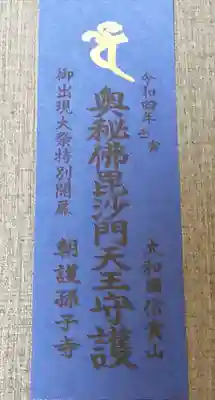 令和四年 壬寅
大和國信貴山
奥秘佛毘沙門天王守護
御出現大祭特別開扉
朝護孫子寺